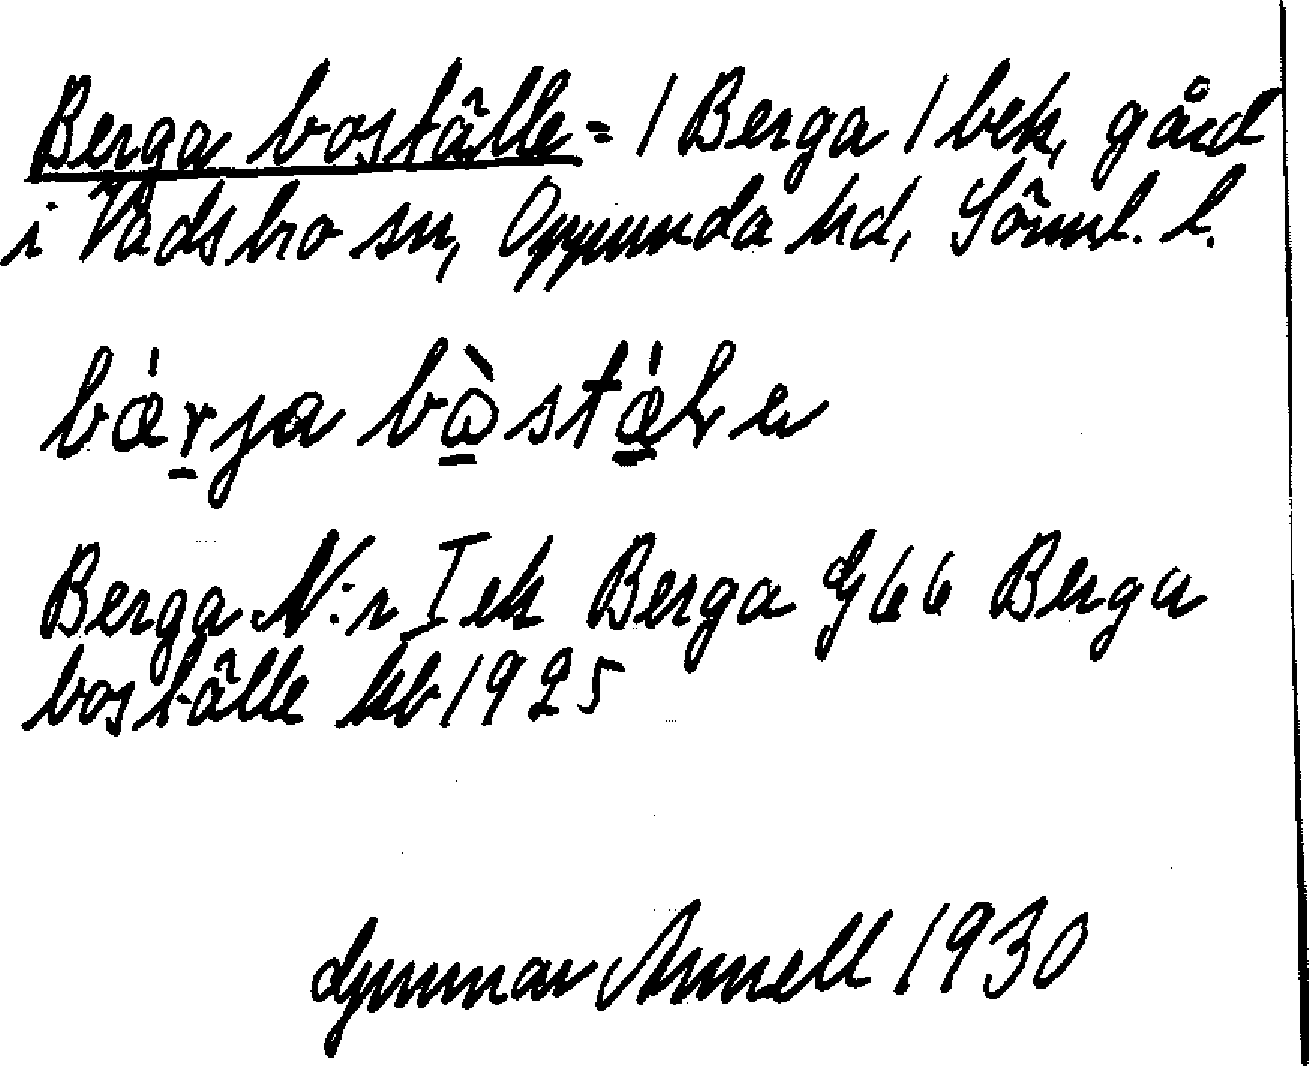 Berga boställe = / Berga / bek, gård
i Vadsbro sn, Oppunda hd, Söml. l.
bǽrja bòstǽle
Berga N:r I ek Berga G66 Berga
boställe hb 1925
Gunnar Annell 1930